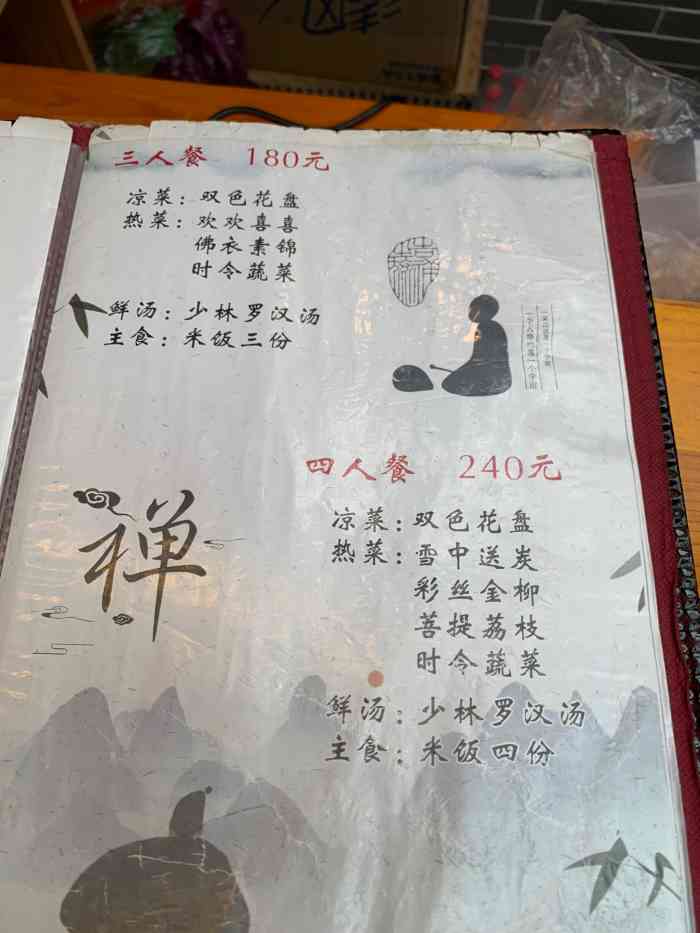 三人餐 180元
凉菜：双色花盘
热菜：欢欢喜喜
佛衣素锦
时令蔬菜
鲜汤：少林罗汉汤
主食：米饭三份
四人餐 240元
凉菜：双色花盘
热菜：雪中送炭
彩丝金柳
菩提荔枝
时令蔬菜
鲜汤：少林罗汉汤
主食：米饭四份
禅